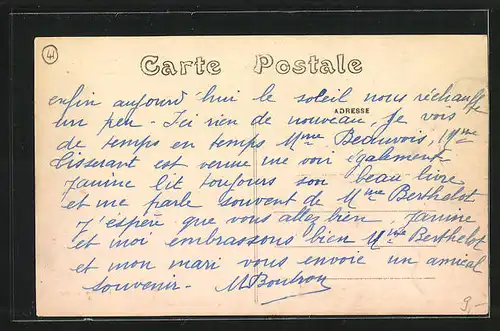 41
Carte Postale
ADRESSE
enfin aujourd'hui le soleil nous réchauffe
un peu - Ici rien de nouveau, je vois
de temps en temps Mme Beauvois, Mme
Tisserant est venue me voir également
Janine lit toujours son beau livre
et me parle souvent de Mme Berthelot
J'espère que vous allez bien, Janine
et moi embrassons bien Mme Berthelot
et mon mari vous envoie un amical
souvenir - M Boulron
9,-